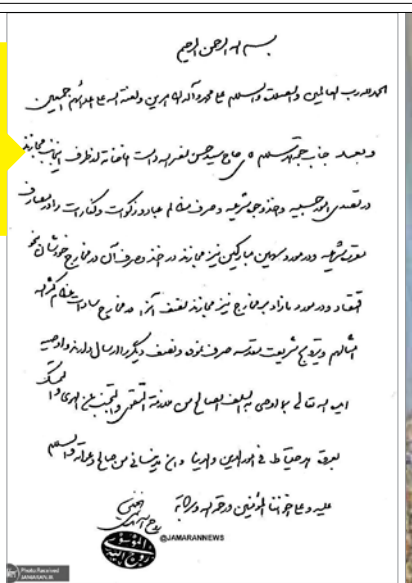 بسم الله الرحمن الرحیم
الحمدلله رب العالمین والصلوة والسلام علی محمد وآله الطاهرین ولعنة الله علی اعدائهم اجمعین
وبعد جناب حجةالاسلام حاج سید حسن نصرالله دامت افاضاته از طرف اینجانب مجازند
در تصدی امور حسبیه واخذ وجوه شرعیه وصرف مظالم عباد وزکوات وکفارات را در مصارف
مقرره شرعیه ودر مورد سهمین مبارکین نیز مجازند در اخذ وصرف آن در مخارج خودشان بنحو
اقتصاد ودر مورد مازاد بر مخارج نیز مجازند نصف آنرا در مخارج سادات عظام کثرالله
امثالهم وترویج شریعت مقدسه صرف نموده ونصف دیگر را ارسال دارند واوصیه
ایده الله تعالی بما اوصی به السلف الصالح من ملازمة التقوی والتجنب عن الهوی والتمسک
بعروة الاحتیاط فی امور الدین والدنیا وان لا ینسانی من صالح دعواته والسلام
علیه وعلی اخواننا المؤمنین ورحمة الله وبرکاته
روح الله الموسوی الخمینی
@JAMARANNEWS
Photo Received
JAMARAN.IR